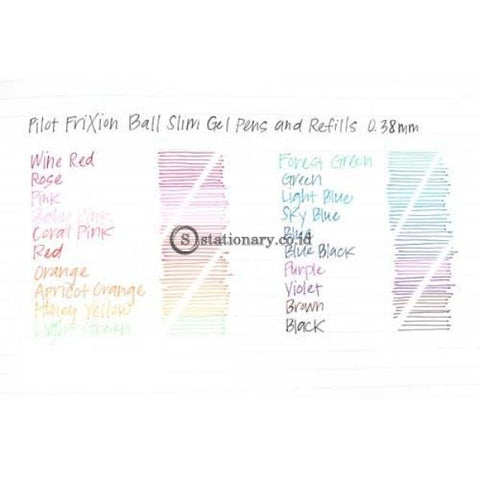 Pilot FriXion Ball Slim Gel Pens and Refills 0.38mm
Wine Red
Rose
Pink
Baby Pink
Coral Pink
Red
Orange
Apricot Orange
Honey Yellow
Light Green
Forest Green
Green
Light Blue
Sky Blue
Blue
Blue Black
Purple
Violet
Brown
Black
S stationary.co.id